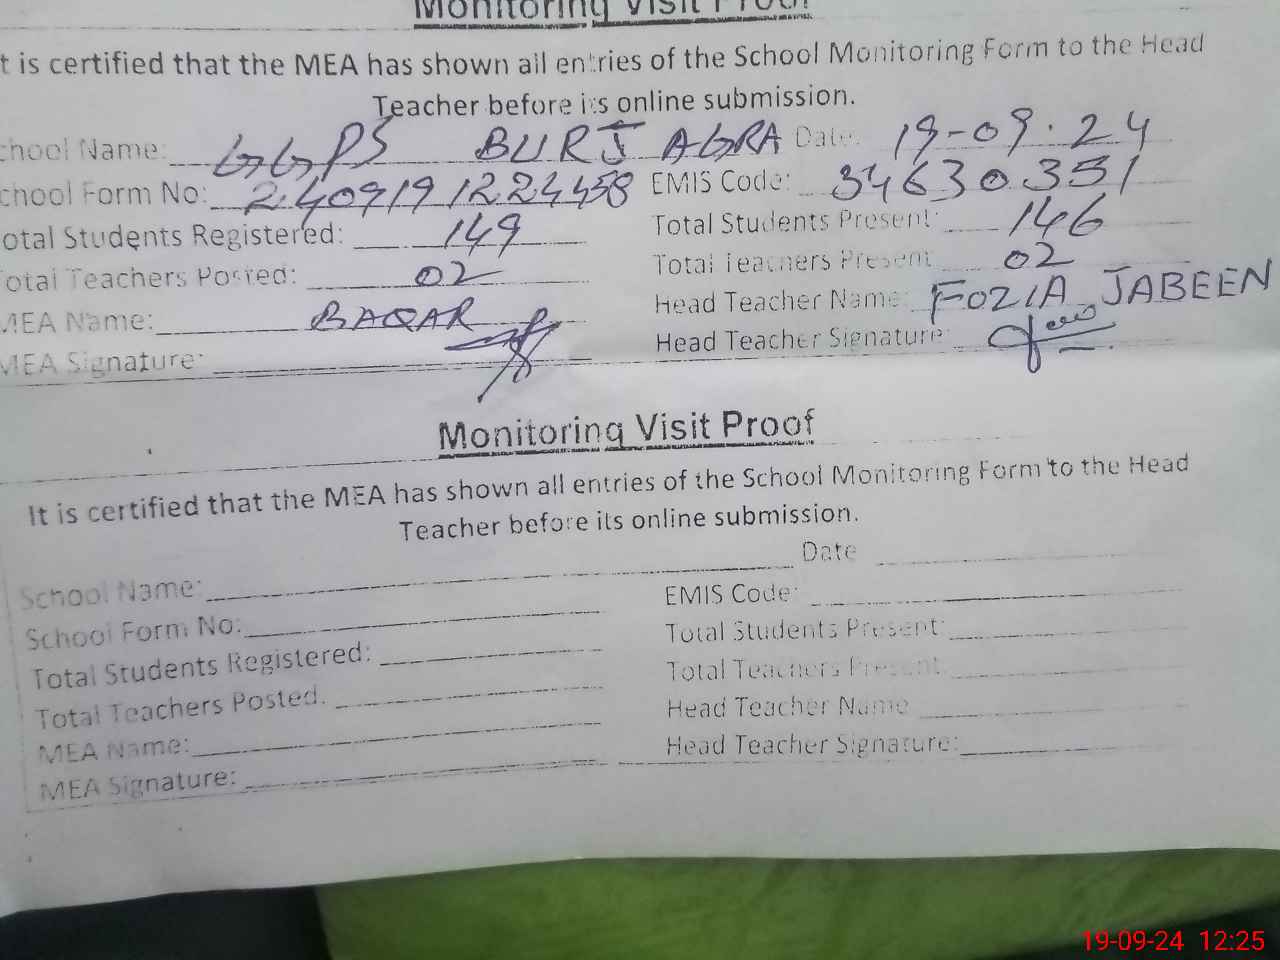 Monitoring Visit Proof
t is certified that the MEA has shown all entries of the School Monitoring Form to the Head
Teacher before its online submission.
chool Name: GGPS BURJ AGRA Date: 19-09.24
chool Form No: 240919 1224458 EMIS Code: 34630351
otal Students Registered: 149 Total Students Present: 146
otal Teachers Posted: 02 Total Teachers Present 02
MEA Name: BAQAR Head Teacher Name: FOZIA JABEEN
MEA Signature: Head Teacher Signature:
Monitoring Visit Proof
It is certified that the MEA has shown all entries of the School Monitoring Form to the Head
Teacher before its online submission.
School Name: Date
School Form No: EMIS Code:
Total Students Registered: Total Students Present:
Total Teachers Posted. Total Teachers Present:
MEA Name: Head Teacher Name
MEA Signature: Head Teacher Signature:
19-09-24 12:25